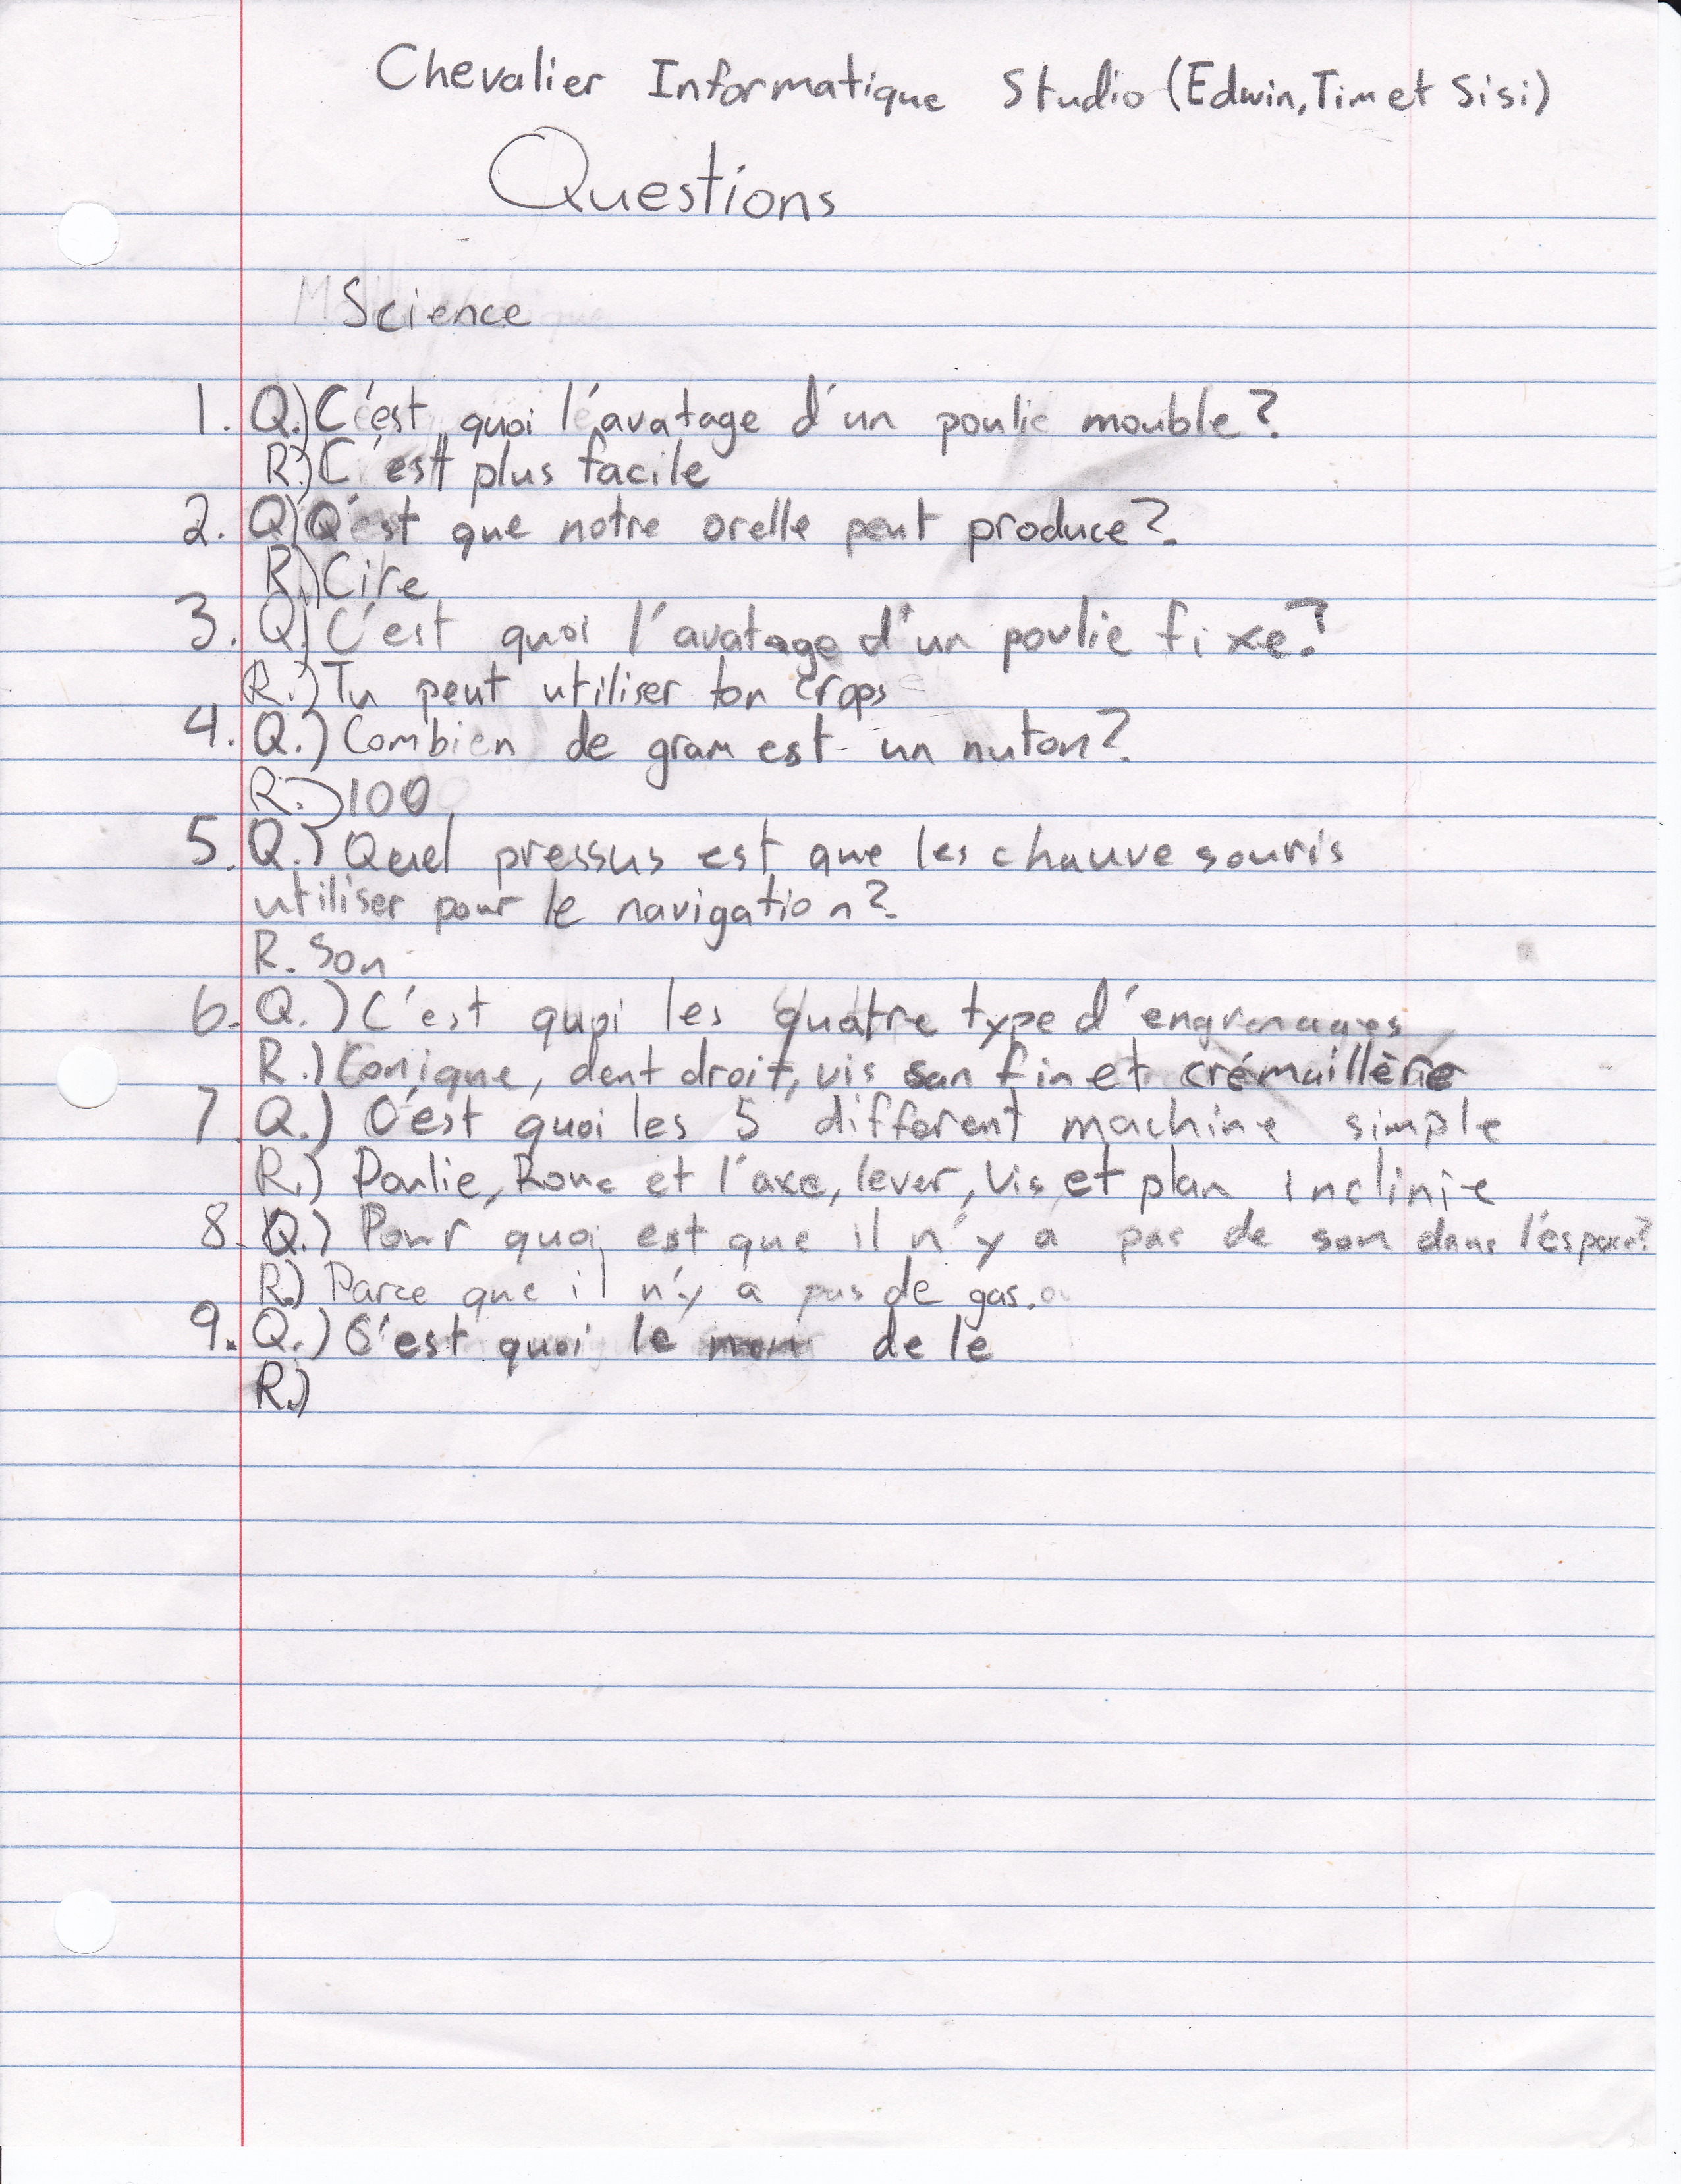 Chevalier Informatique Studio (Edwin, Tim et Sisi)
Questions
Science
1. Q.) C'est quoi l'avatage d'un poulie mouble?
R.) C'est plus facile
2. Q.) Q'est que notre orelle peut produce?
R.) Cire
3. Q.) C'est quoi l'avatage d'un poulie fixe?
R.) Tu peut utiliser ton crops
4. Q.) Combien de gram est un nuton?
R.) 100
5. Q.) Quel pressus est que les chauve souris
utiliser pour le navigation?
R. Son
6. Q.) C'est quoi les quatre type d'engrenages
R.) Conique, dent droit, vis san fin et crémaillère
7. Q.) C'est quoi les 5 different machine simple
R.) Poulie, Roue et l'axe, lever, Vis, et plan inclinie
8. Q.) Pour quoi est que il n'y a pas de son dans l'éspace?
R.) Parce que il n'y a pas de gas.
9. Q.) C'est quoi le de le
R.)